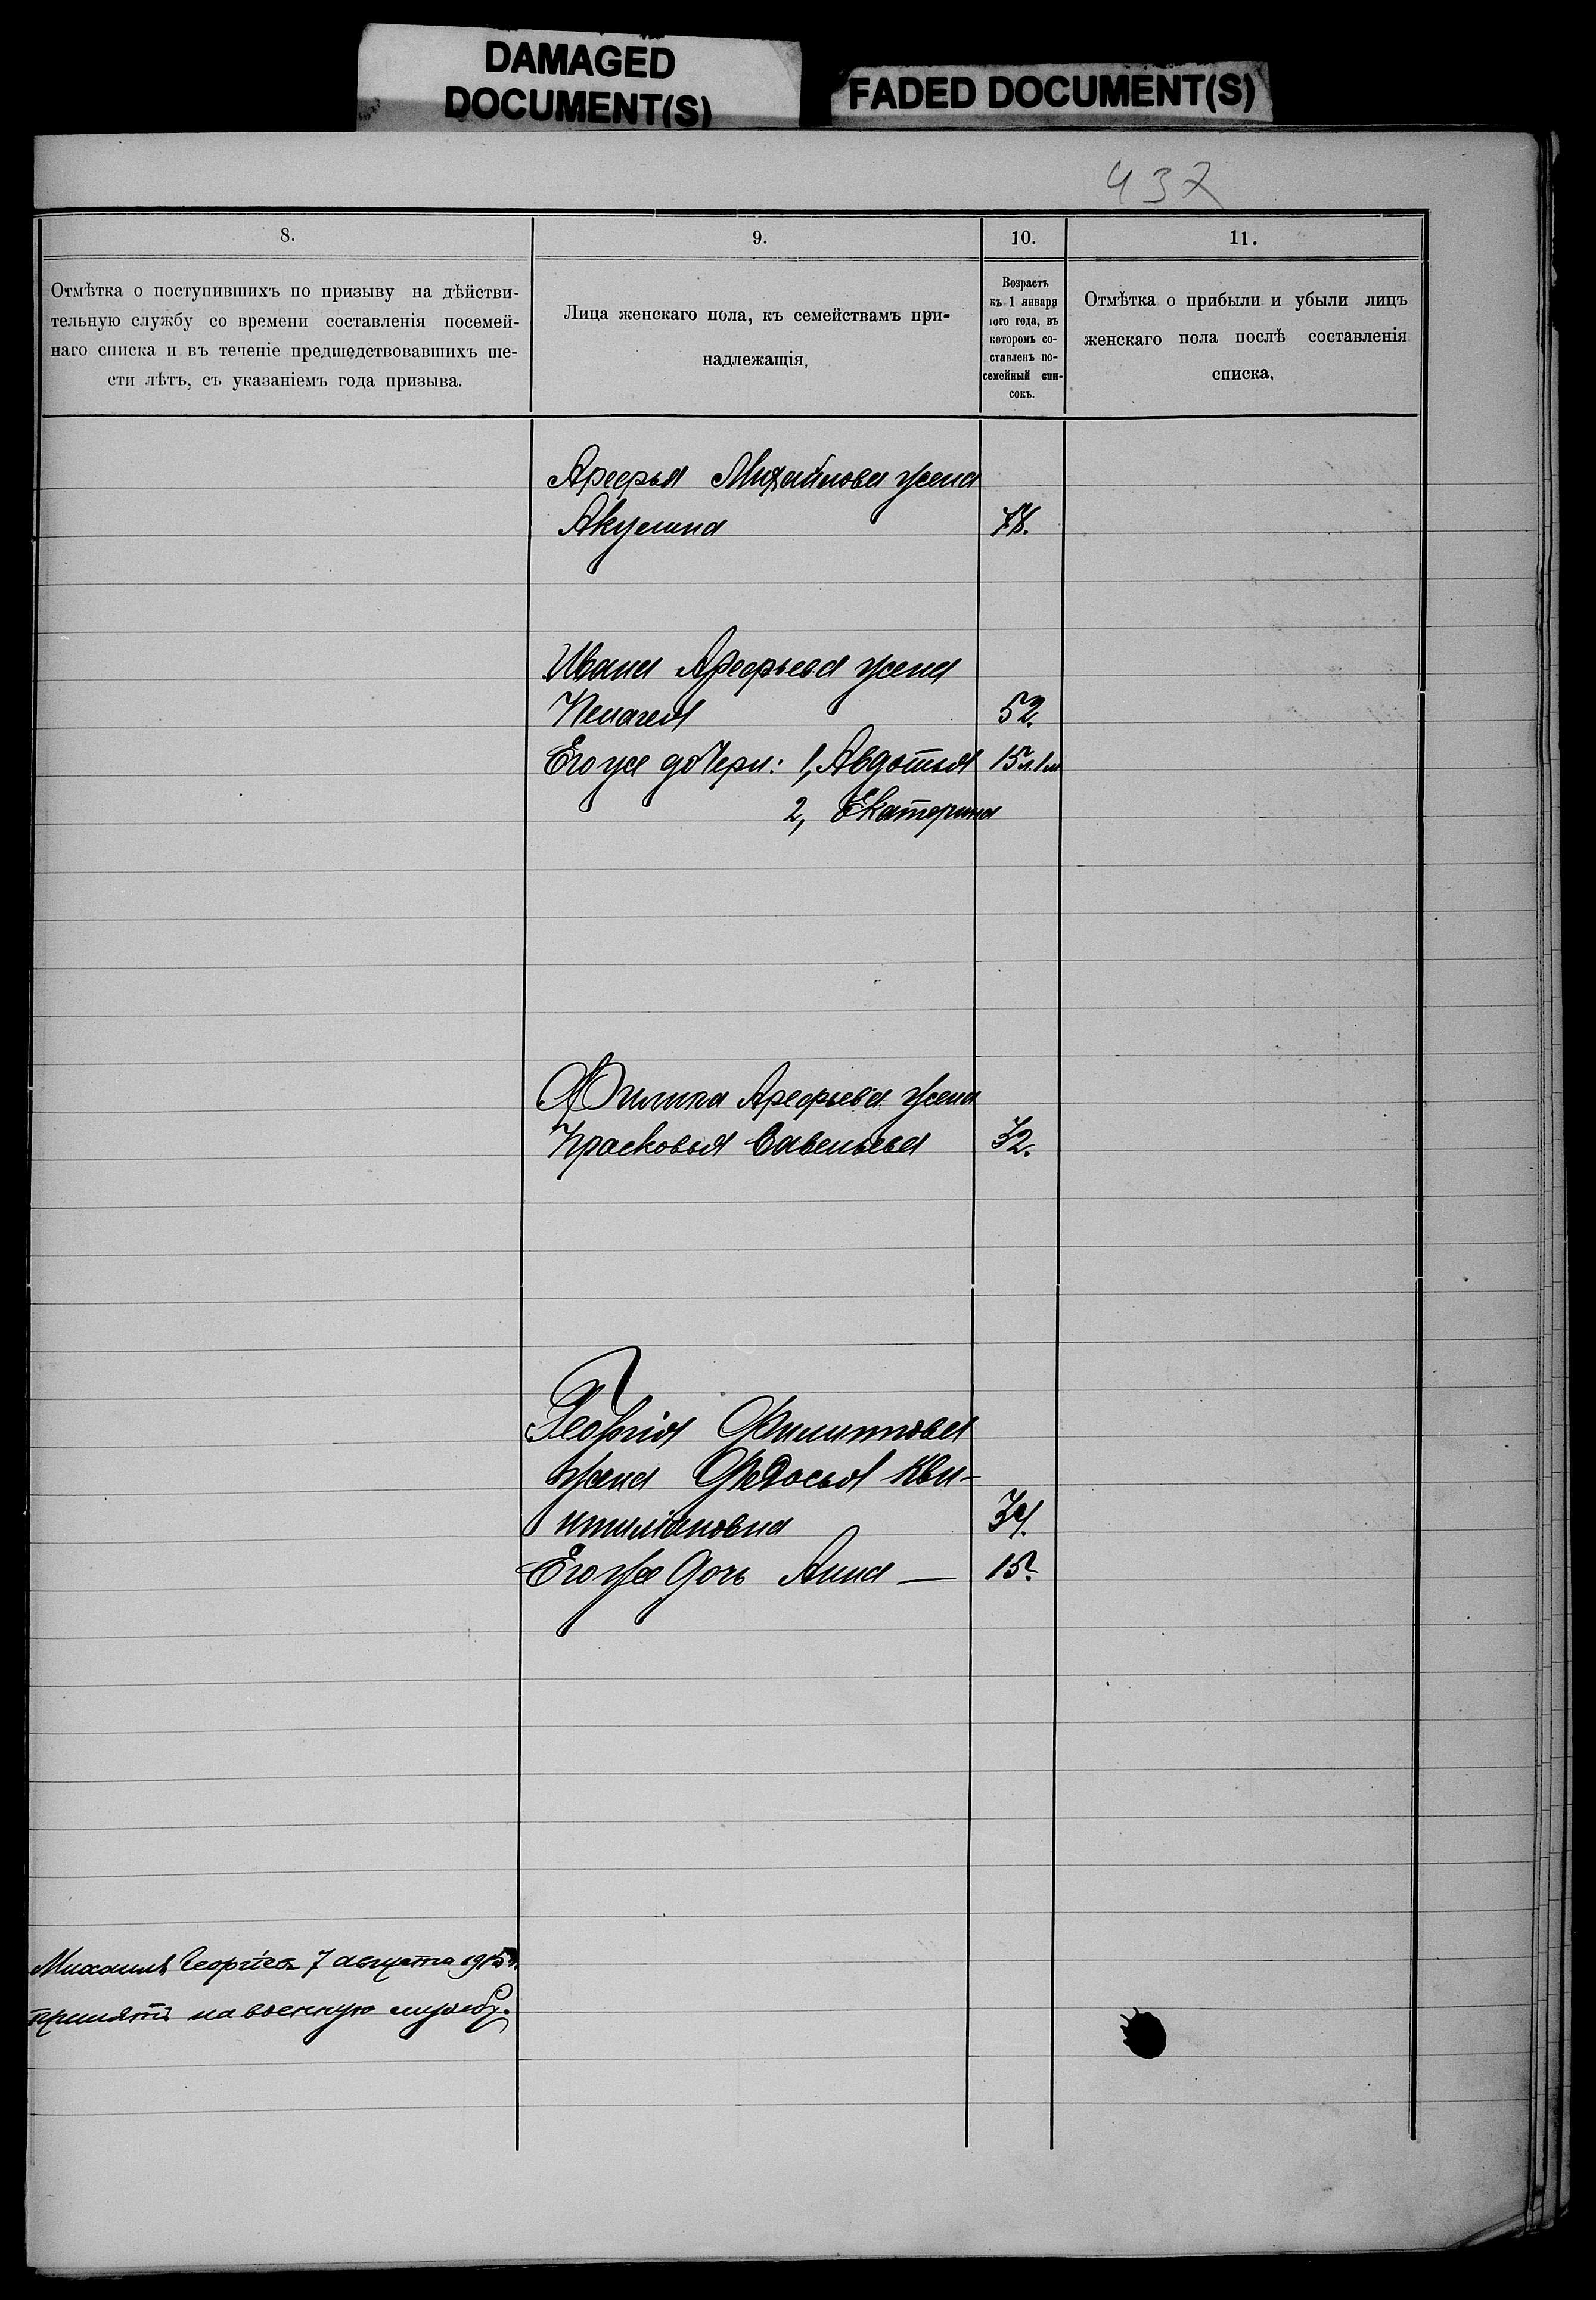 DAMAGED
DOCUMENT(S)
FADED DOCUMENT(S)
437
8.
9.
10.
11.
Отмѣтка о поступившихъ по призыву на дѣйстви-
тельную службу со времени составленія посемей-
наго списка и въ теченіе предшедствовавшихъ ше-
сти лѣтъ, съ указаніемъ года призыва.
Лица женскаго пола, къ семействамъ при-
надлежащія,
Возрастъ
къ 1 января
того года, въ
которомъ со-
ставленъ по-
семейный спи-
сокъ.
Отмѣтка о прибыли и убыли лицъ
женскаго пола послѣ составленія
списка,
Арефья Михайлова жена
Акулина 78.
Ивана Арефьева жена
Пелагея 52.
Его же дочери: 1, Авдотья 15 л. 1 м
2, Екатерина
Филипа Арефьева жена
Прасковья Савельева 32.
Георгія Филиппова
жена Федосья Кви-
нтиліановна 34.
Его же дочь Анна — 15.
Михаилъ Георгіевъ 7 августа 1915 г.
принятъ на военную службу.